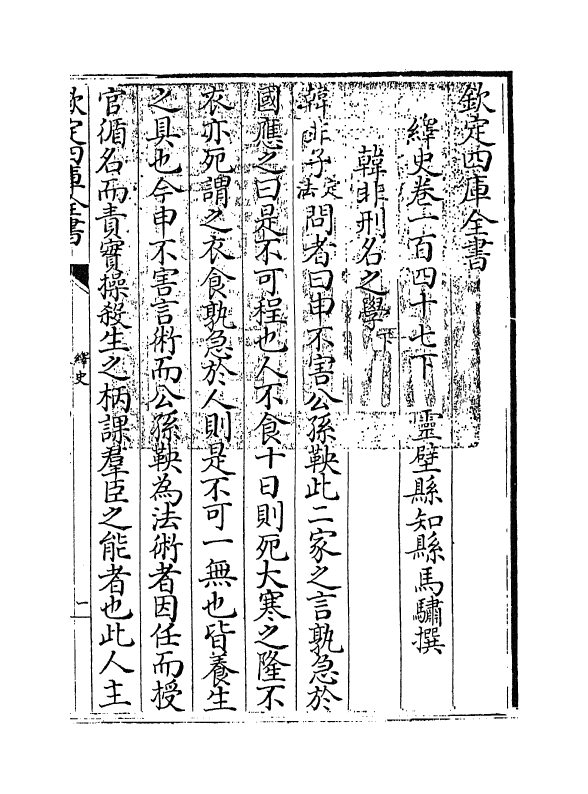 欽定四庫全書
繹史卷一百四十七下　靈壁縣知縣馬驌撰
韓非刑名之學下
韓非子定法問者曰申不害公孫鞅此二家之言孰急於
國應之曰是不可程也人不食十日則死大寒之隆不
衣亦死謂之衣食孰急於人則是不可一無也皆養生
之具也今申不害言術而公孫鞅為法術者因任而授
官循名而責實操殺生之柄課羣臣之能者也此人主
欽定四庫全書
繹史
一